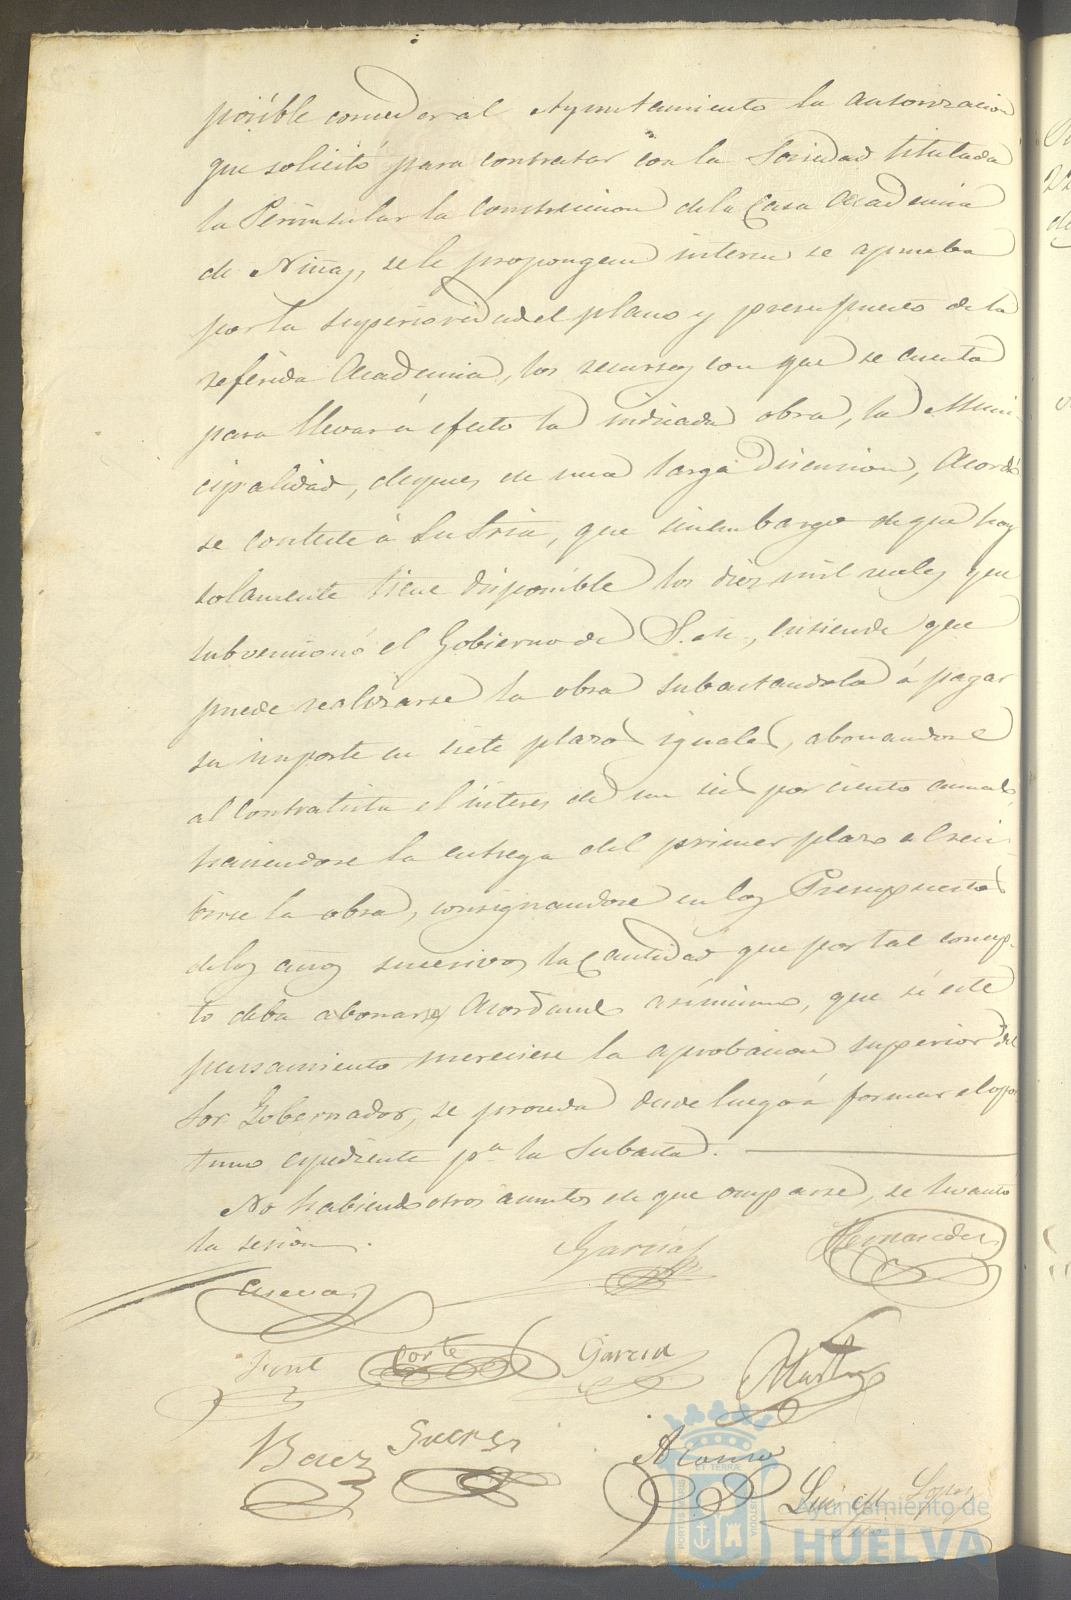 posible conceder al Ayuntamiento la autorizacion
que solicitó para contratar con la Sociedad titulada
la Peninsular la construccion de la Casa Academia
de Niñas, se le propongan interin se aprueba
por la superioridad el plano y presupuesto de la
referida Academia, los recursos con que se cuenta
para llevar á efecto la indicada obra, la Muni-
cipalidad, despues de una larga discusion, Acordó
se conteste á Su Sria, que sin embargo de que hoy
solamente tiene disponible los diez mil reales que
subvencionó el Gobierno de S. M., entiende que
puede realizarse la obra subastandola á pagar
su importe en siete plazos iguales, abonandose
al contratista el interes de un seis por ciento anual,
haciendose la entrega del primer plazo al reci-
birse la obra, consignandose en los Presupuestos
de los años sucesivos la cantidad que por tal concep-
to deba abonarse, Acordando asimismo, que si este
pensamiento mereciese la aprobacion superior del
Sor Gobernador, se proceda desde luego á formar el opor
tuno espediente pa la Subasta.
No habiendo otros asuntos de que ocuparse, se levantó
la sesion.
Garcia Hernandez
Cuevas
Font Corte Garcia Martin
Baez Suarez Alonso
Luis M. Lopez
PORTUS MARIS ET TERRÆ CUSTODIA
Ayuntamiento de
HUELVA